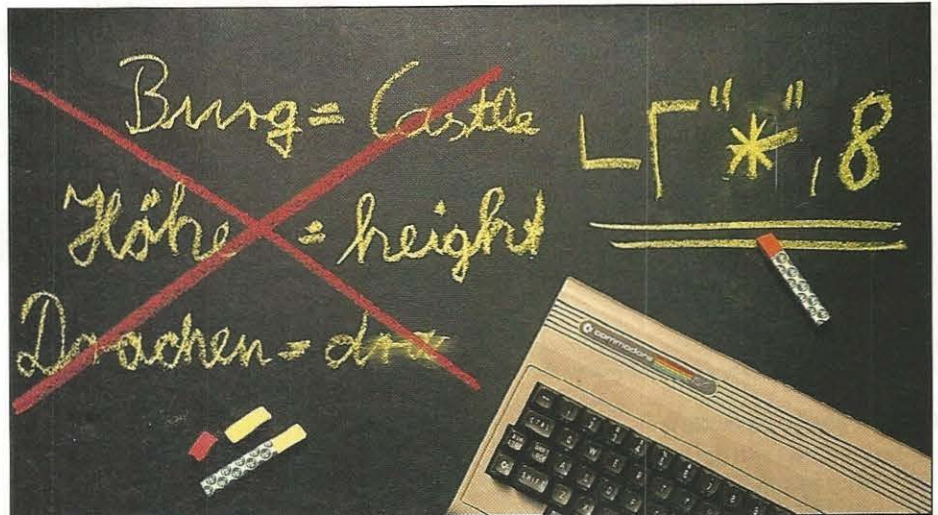 Burg = Castle
Höhe = height
Drachen = dra
L┌"*",8
commodore
CTRL
SHIFT